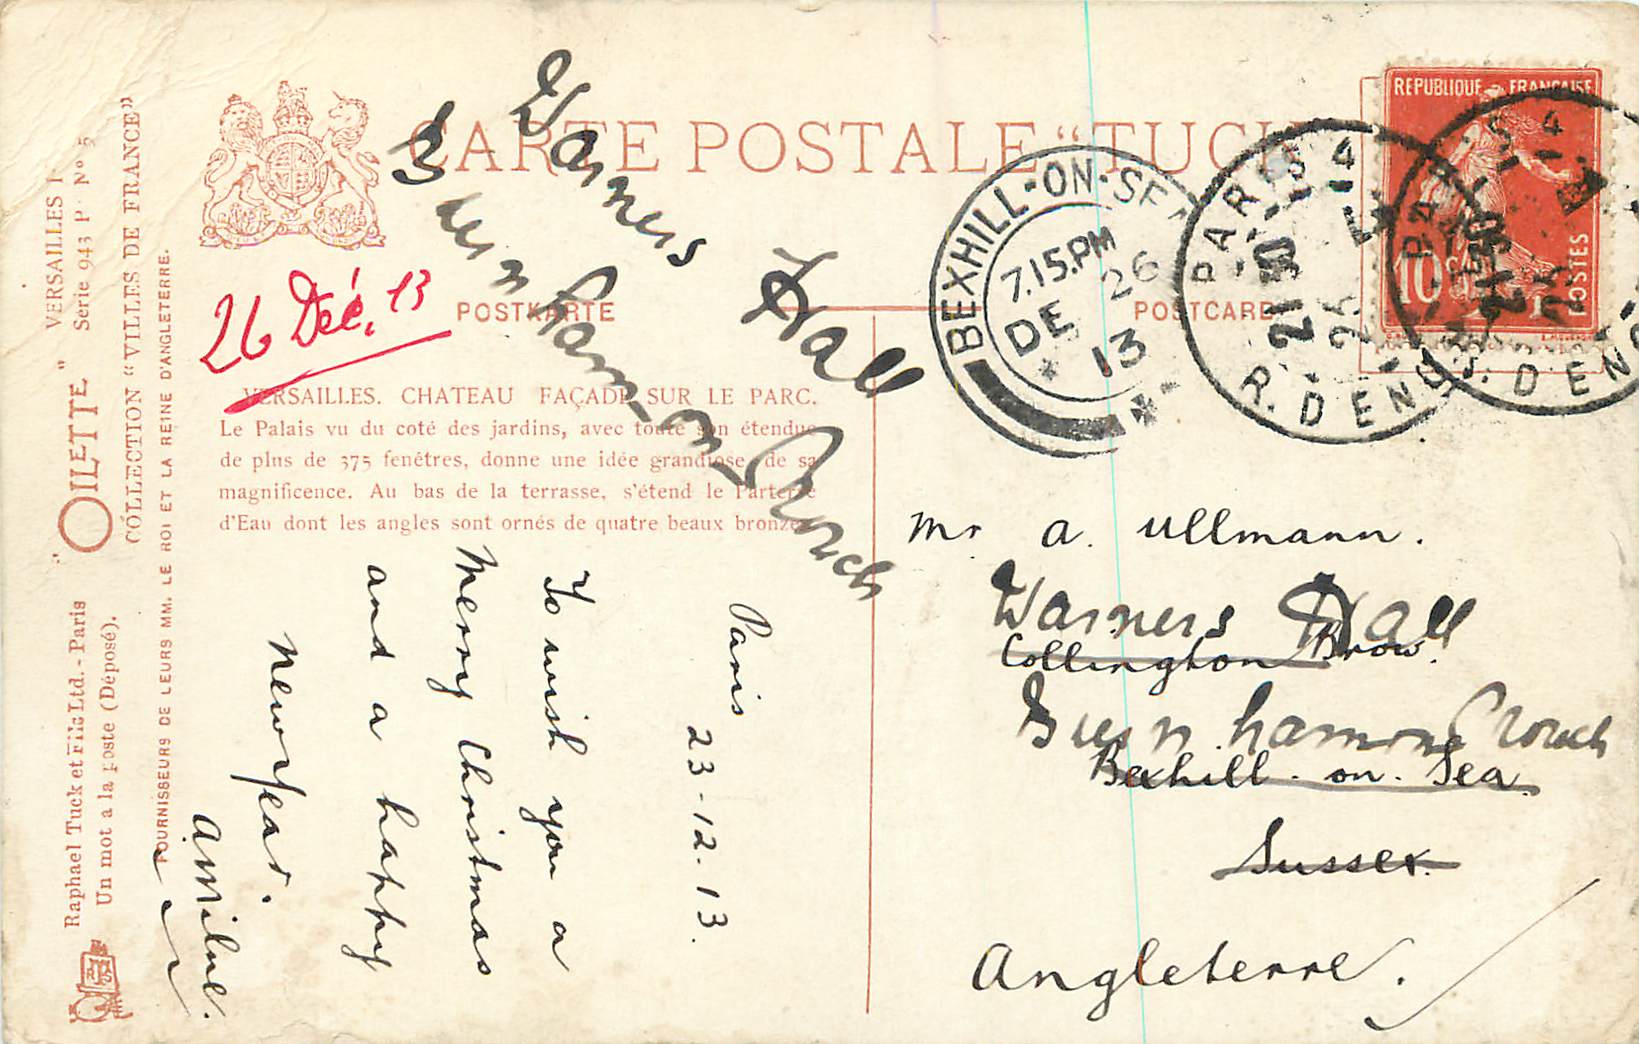 CARTE POSTALE “TUCK
POSTKARTE
POSTCARD
26 Déc. 13
VERSAILLES. CHATEAU FAÇADE SUR LE PARC.
Le Palais vu du coté des jardins, avec toute son étendue
de plus de 375 fenêtres, donne une idée grandiose de sa
magnificence. Au bas de la terrasse, s'étend le Parterre
d'Eau dont les angles sont ornés de quatre beaux bronzes
VERSAILLES I
Serie 943 P Nº 5
" OILETTE "
COLLECTION “VILLES DE FRANCE”
FOURNISSEURS DE LEURS MM. LE ROI ET LA REINE D'ANGLETERRE.
Raphael Tuck et Fils Ltd. - Paris
Un mot a la poste (Déposé).
Warners Hall
Burnham-on-Crouch
Paris
23-12-13.
To wish you a
Merry Christmas
and a happy
New Year.
REPUBLIQUE FRANÇAISE
10 c
POSTES
BEXHILL-ON-SEA
7.15.PM
DE 26
13
PARIS
21 30
R. DENO
PARIS
21 30
R. DENO
Mr A. Ullmann.
Warners Hall
Collington Brow.
Burnham on Crouch
Bexhill. on. Sea.
Sussex.
Angleterre.